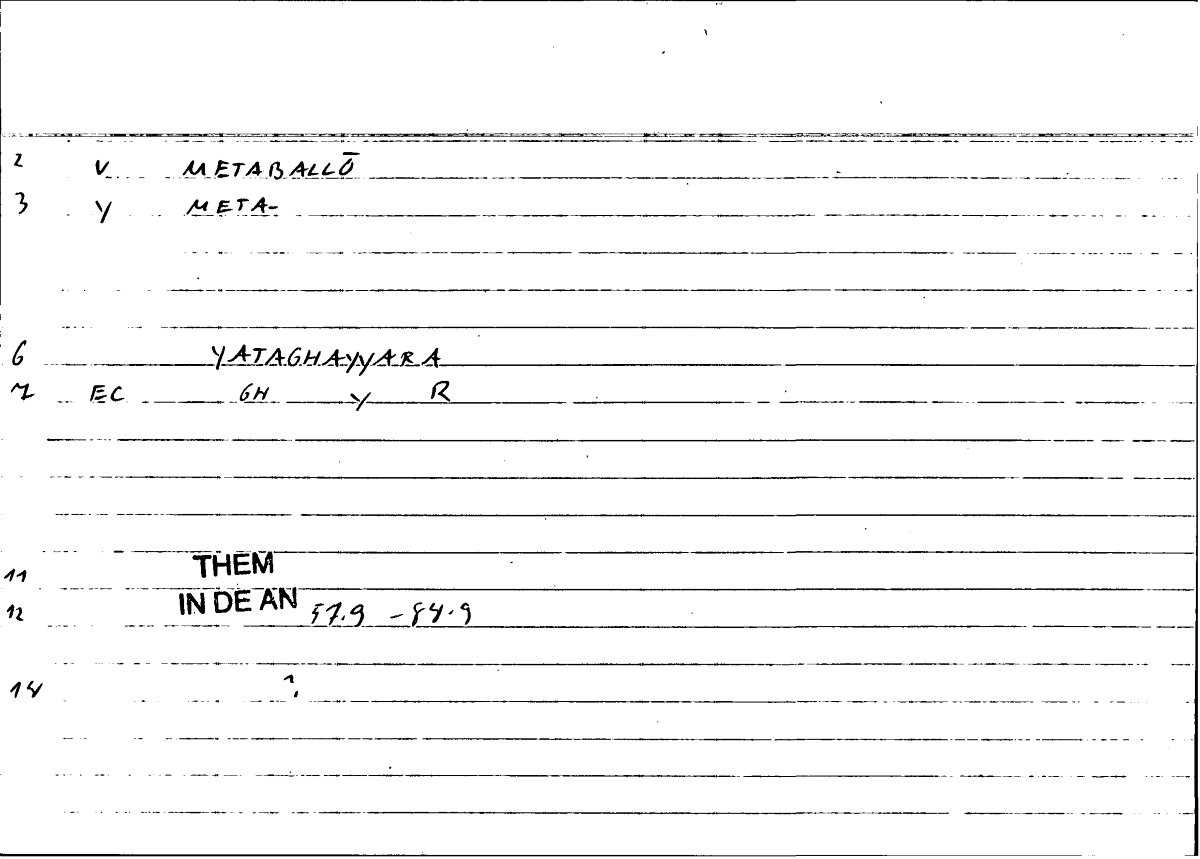 2 V METABALLŌ
3 Y META-
6 YATAGHAYYARA
7 EC GH Y R
11 THEM
12 IN DE AN 57.9 - 84.9
14